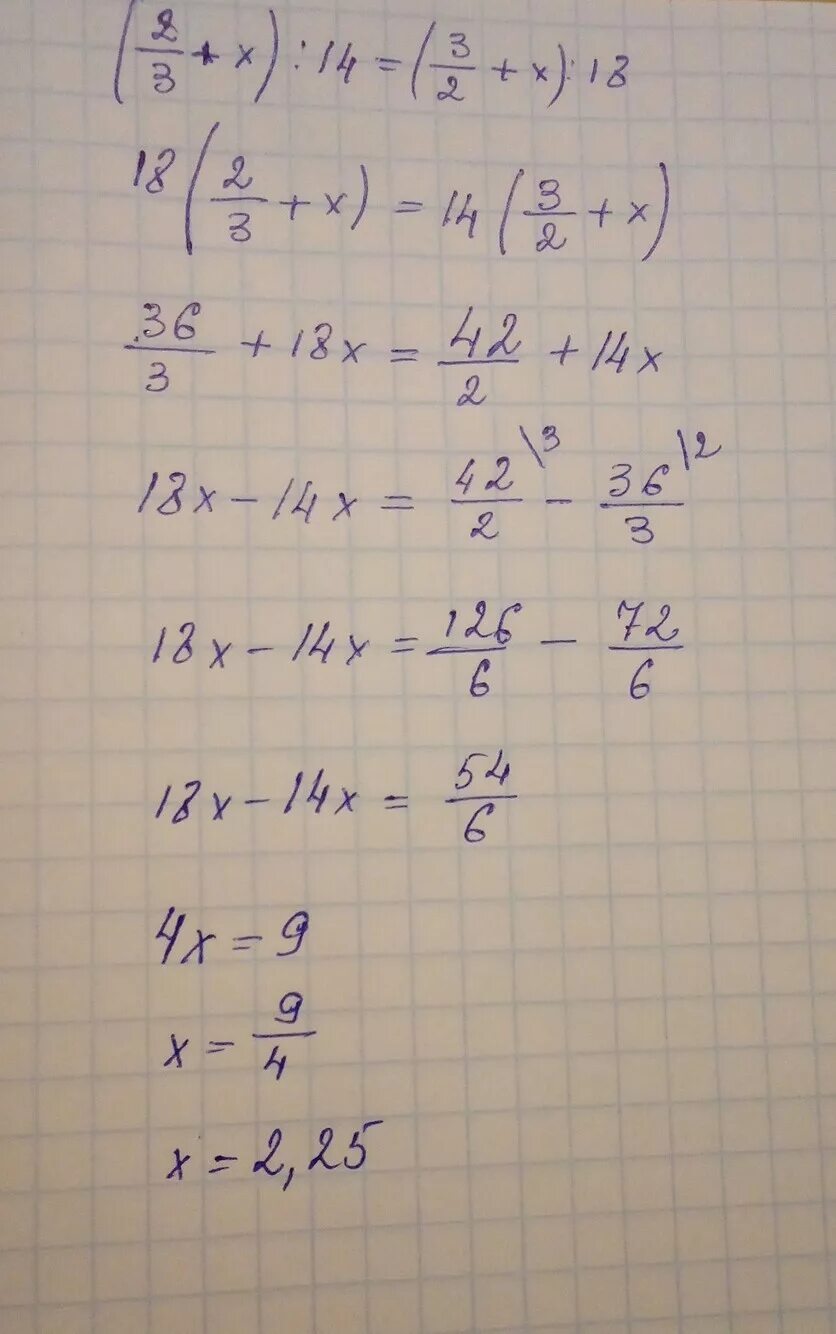 (2/3 + x) : 14 = (3/2 + x) : 18
18 (2/3 + x) = 14 (3/2 + x)
36/3 + 18x = 42/2 + 14x
18x − 14x = 42/2 \3 − 36/3 \2
18x − 14x = 126/6 − 72/6
18x − 14x = 54/6
4x = 9
x = 9/4
x = 2,25